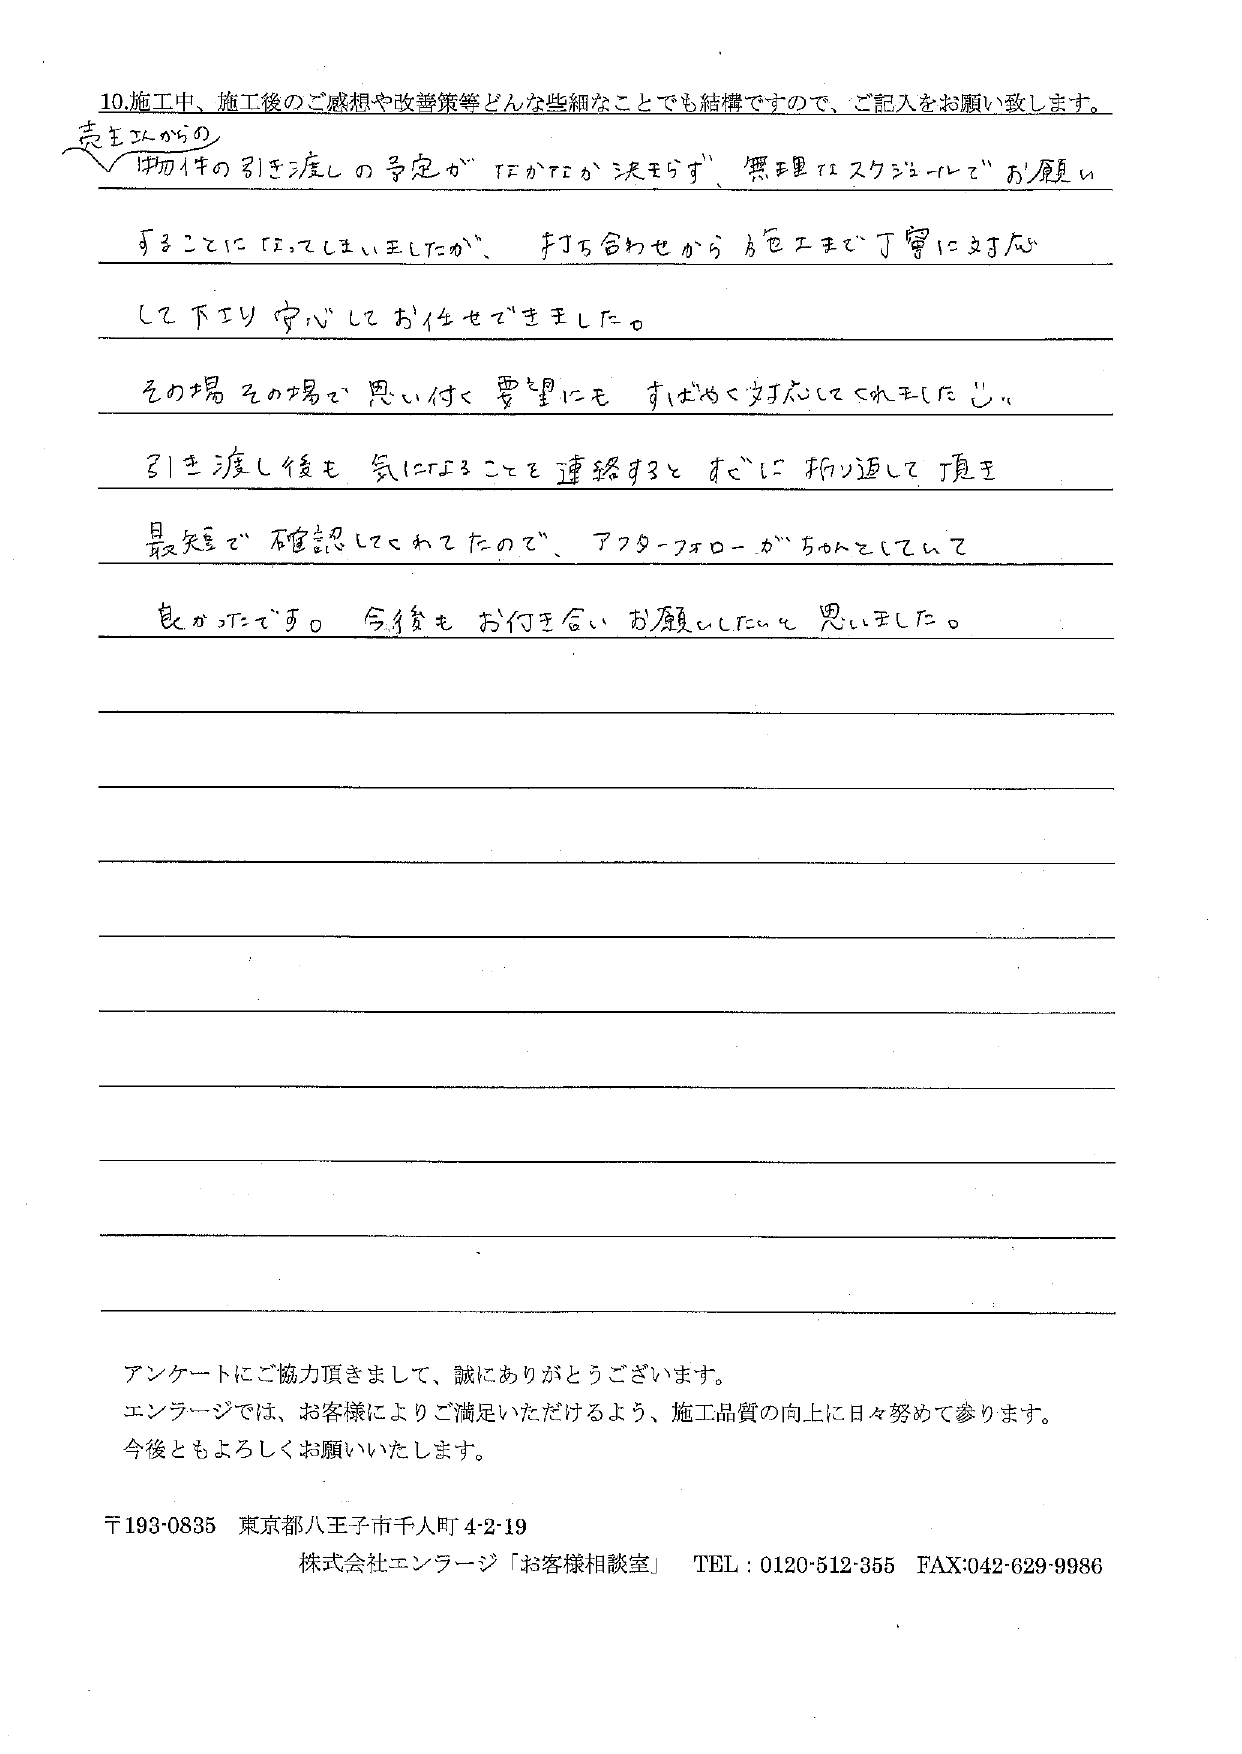 10.施工中、施工後のご感想や改善策等どんな些細なことでも結構ですので、ご記入をお願い致します。
売主さんからの
物件の引き渡しの予定がなかなか決まらず、無理なスケジュールでお願い
することになってしまいましたが、打ち合わせから施工まで丁寧に対応
して下さり安心してお任せできました。
その場その場で思い付く要望にもすばやく対応してくれました
引き渡し後も気になることを連絡するとすぐに折り返して頂き
最短で確認してくれてたので、アフターフォローがちゃんとしていて
良かったです。今後もお付き合いお願いしたいと思いました。
アンケートにご協力頂きまして、誠にありがとうございます。
エンラージでは、お客様によりご満足いただけるよう、施工品質の向上に日々努めて参ります。
今後ともよろしくお願いいたします。
〒193-0835 東京都八王子市千人町4-2-19
株式会社エンラージ「お客様相談室」 TEL：0120-512-355 FAX:042-629-9986